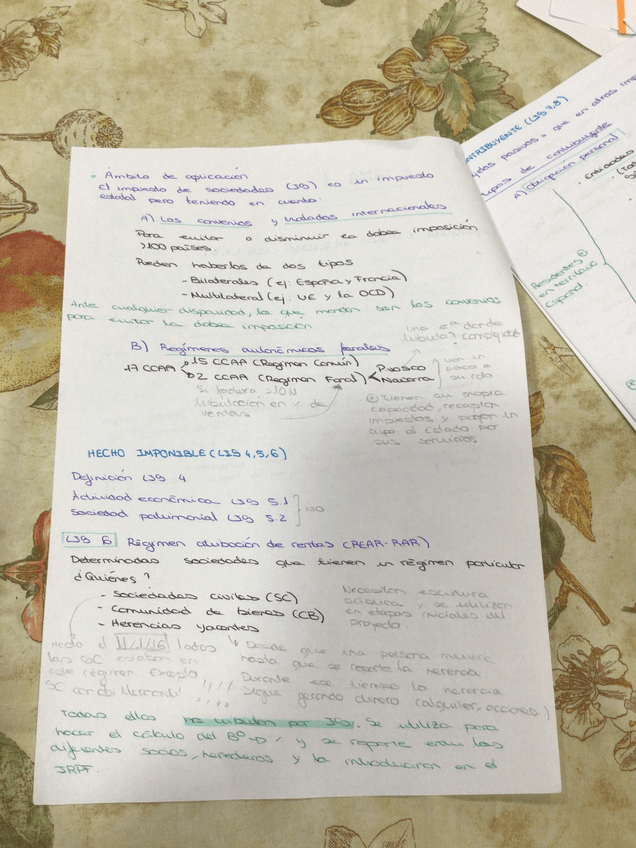 Ámbito de aplicación
El impuesto de sociedades (IS) es un impuesto
estatal pero teniendo en cuenta:
A) Los convenios y tratados internacionales
Para evitar o disminuir la doble imposición
>100 países
Pueden haberlos de dos tipos
- Bilaterales (ej: España y Francia)
- Multilateral (ej: UE y la OCD)
Ante cualquier disparidad, lo que mandan son los convenios
para evitar la doble imposición
B) Regímenes autonómicos forales
una eª donde
tributa? complejidad
17 CCAA
15 CCAA (Régimen Común)
2 CCAA (Régimen Foral)
P. vasco
Navarra
van un
poco a
su rollo
Si factura >10M
tributación en % de
ventas
Tienen su propia
capacidad, recaptan
impuestos, y pagan un
cupo al Estado por
sus servicios
HECHO IMPONIBLE (LIS 4,5,6)
Definición LIS 4
Actividad económica LIS 5.1
Sociedad patrimonial LIS 5.2
NO
LIS 6 Régimen atribución de rentas (REAR-RAR)
Determinadas sociedades que tienen un régimen particular
¿Quiénes?
- Sociedades civiles (SC)
- Comunidad de bienes (CB)
- Herencias yacentes
Necesitan escritura
pública y se utilizan
en etapas iniciales del
proyecto
Hasta el 1/1/16 todas
las SC estaban en
este régimen. Excepto
SC con obj Mercantil
Desde que una persona muere
hasta que se reparte la herencia
Durante ese tiempo la herencia
sigue generando dinero (alquiler, acciones)
Todas ellas no tributan por IS, se utiliza para
hacer el cálculo del Bº-D / y se reparte entre los
diferentes socios, herederos y lo introducirán en el
IRPF.
CONTRIBUYENTE (LIS 7,8)
que en otros imp
Tipos de contribuyente
A) Obligación personal
Entidades
Residentes
en territorio
Español